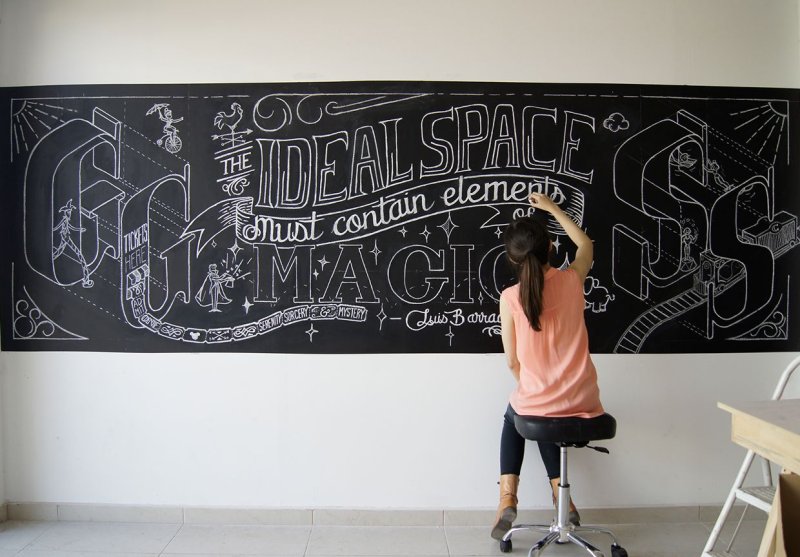 THE
IDEAL SPACE
Must contain elements
of
MAGIC
— Luis Barra
TICKETS
HERE
SERENITY SORCERY & MYSTERY
G G
S S